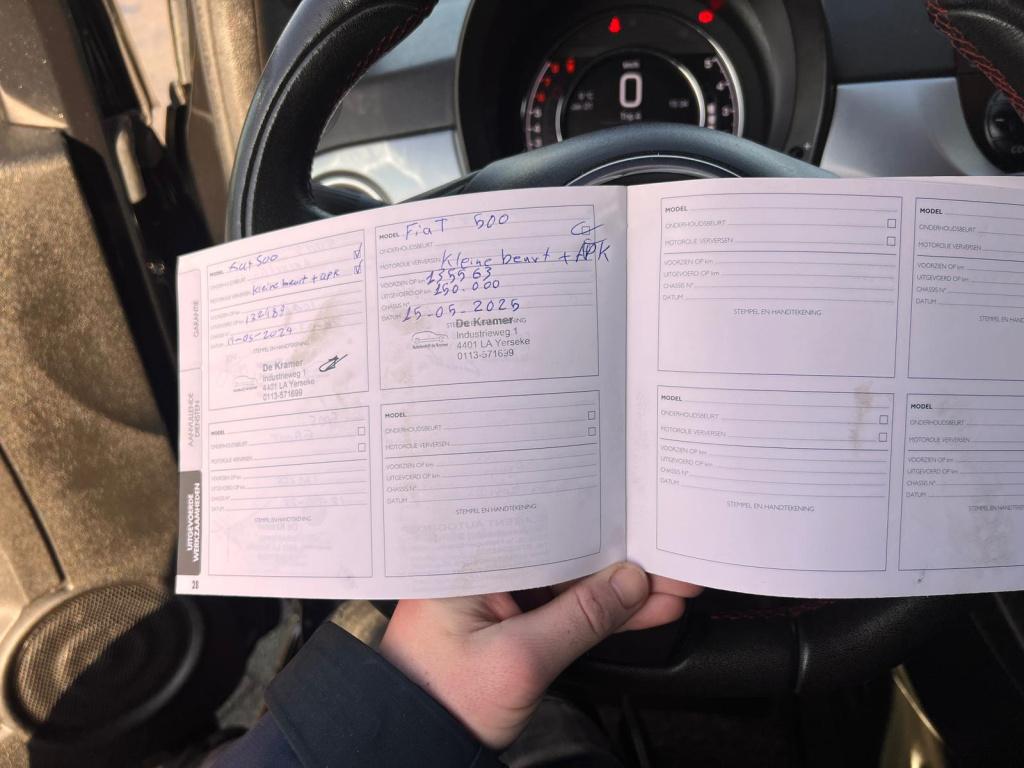 GARANTIE
AANVULLENDE
DIENSTEN
UITGEVOERDE
WERKZAAMHEDEN
28
MODEL
ONDERHOUDSBEURT
MOTOROLIE VERVERSEN Kleine beurt + APK
VOORZIEN OP km
UITGEVOERD OP km
CHASSIS N°
DATUM
STEMPEL EN HANDTEKENING
De Kramer
Industrieweg 1
4401 LA Yerseke
0113-571699
MODEL FiaT 500
ONDERHOUDSBEURT
MOTOROLIE VERVERSEN Kleine beurt + APK
VOORZIEN OP km 135563
UITGEVOERD OP km 150.000
CHASSIS N°
DATUM 15-05-2025
STEMPEL EN HANDTEKENING
De Kramer
Industrieweg 1
4401 LA Yerseke
0113-571699
MODEL
ONDERHOUDSBEURT
MOTOROLIE VERVERSEN
VOORZIEN OP km
UITGEVOERD OP km
CHASSIS N°
DATUM
STEMPEL EN HANDTEKENING
MODEL
VOORZIEN OP km
UITGEVOERD OP km
CHASSIS N°
DATUM
STEMPEL EN
MODEL
ONDERHOUDSBEURT
MOTOROLIE VERVERSEN
VOORZIEN OP km
UITGEVOERD OP km
CHASSIS N°
DATUM
STEMPEL EN HANDTEKENING
MODEL
ONDERHOUDSBEURT
MOTOROLIE VERVERSEN
VOORZIEN OP km
UITGEVOERD OP km
CHASSIS N°
DATUM
STEMPEL EN HANDTEKENING
MODEL
ONDERHOUDSBEURT
MOTOROLIE VERVERSEN
VOORZIEN OP km
UITGEVOERD OP km
CHASSIS N°
DATUM
STEMPEL EN HANDTEKENING
MODEL
ONDERHOUDSBEURT
MOTOROLIE VERVERSEN
VOORZIEN OP km
UITGEVOERD OP km
CHASSIS N°
DATUM
STEMPEL EN
0